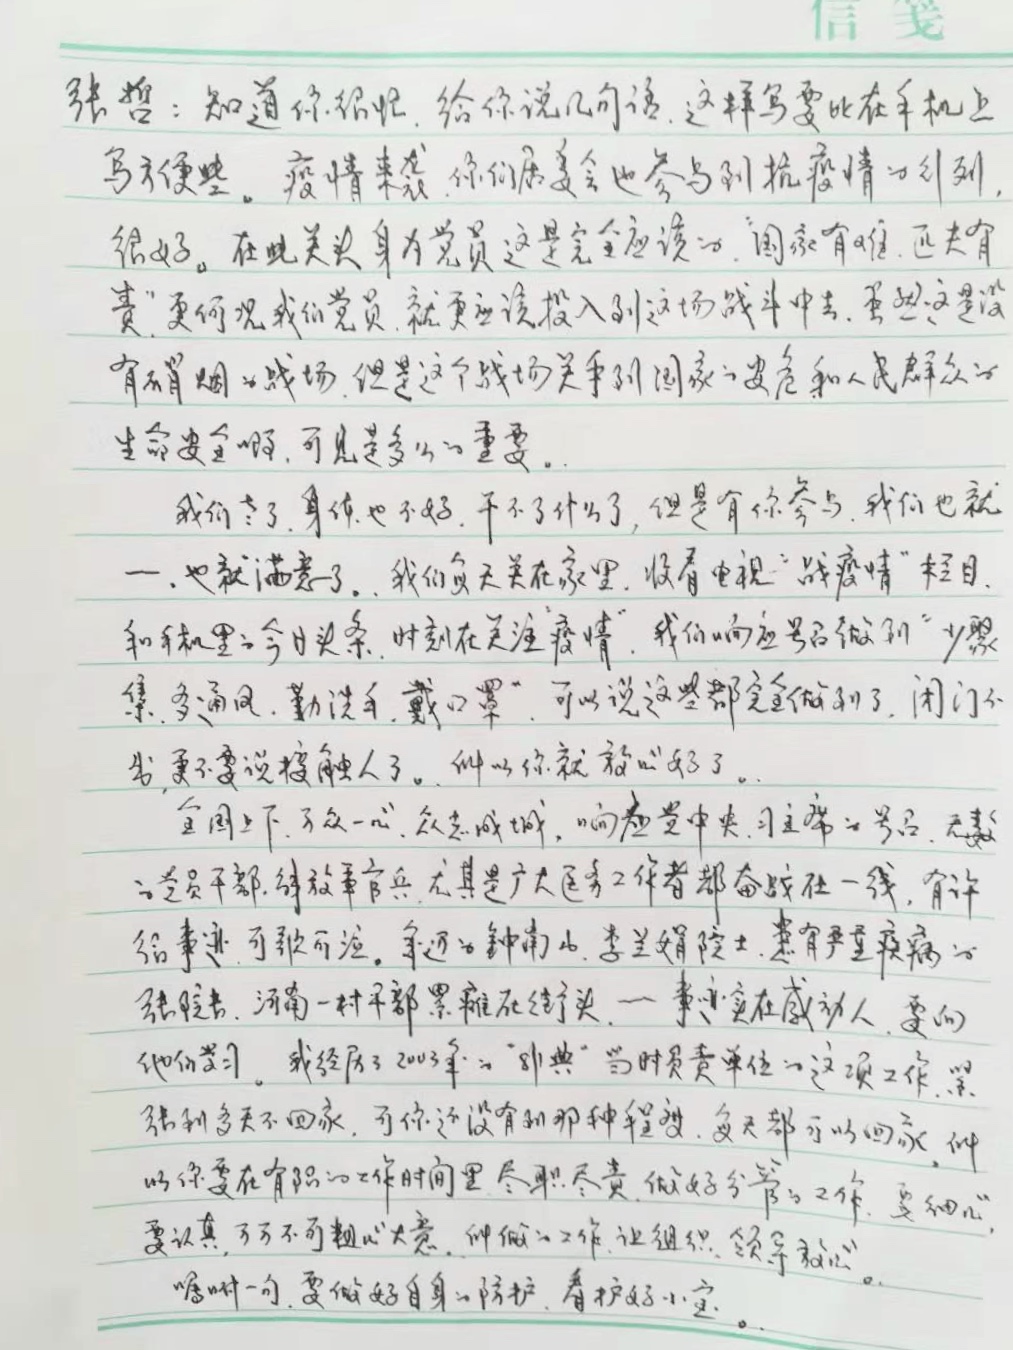 信笺
张哲：知道你很忙，给你说几句话，这样写要比在手机上
写方便些。疫情来袭，你们居委会也参与到抗疫情的行列，
很好。在此关头身为党员这是完全应该的，“国家有难，匹夫有
责”，更何况我们党员，就更应该投入到这场战斗中去，虽然这是没
有硝烟的战场，但是这个战场关乎到国家的安危和人民群众的
生命安全啊，可见是多么的重要。
我们老了，身体也不好，干不了什么了，但是有你参与，我们也就
一，也就满意了。我们每天关在家里，收看电视“战疫情”栏目，
和手机里的今日头条，时刻在关注“疫情”，我们响应号召做到“少聚
集，多通风，勤洗手，戴口罩”，可以说这些都完全做到了，闭门不
出，更不要说接触人了。所以你就放心好了。
全国上下，万众一心，众志成城，响应党中央、习主席的号召，无数
的党员干部，解放军官兵，尤其是广大医务工作者都奋战在一线，有许
给事迹，可歌可泣。年迈的钟南山、李兰娟院士，患有严重疾病的
张院长，河南一村干部累瘫在街头，一一事迹实在感动人，要向
他们学习。我经历了2003年的“非典”当时负责单位的这项工作，紧
张到多天不回家，可你还没有到那种程度，每天都可以回家，所
以你要在有限的工作时间里，尽职尽责，做好分管的工作，要细心，
要认真，万万不可粗心大意，所做的工作，让组织、领导放心。
嘱咐一句，要做好自身的防护，看护好小宝。